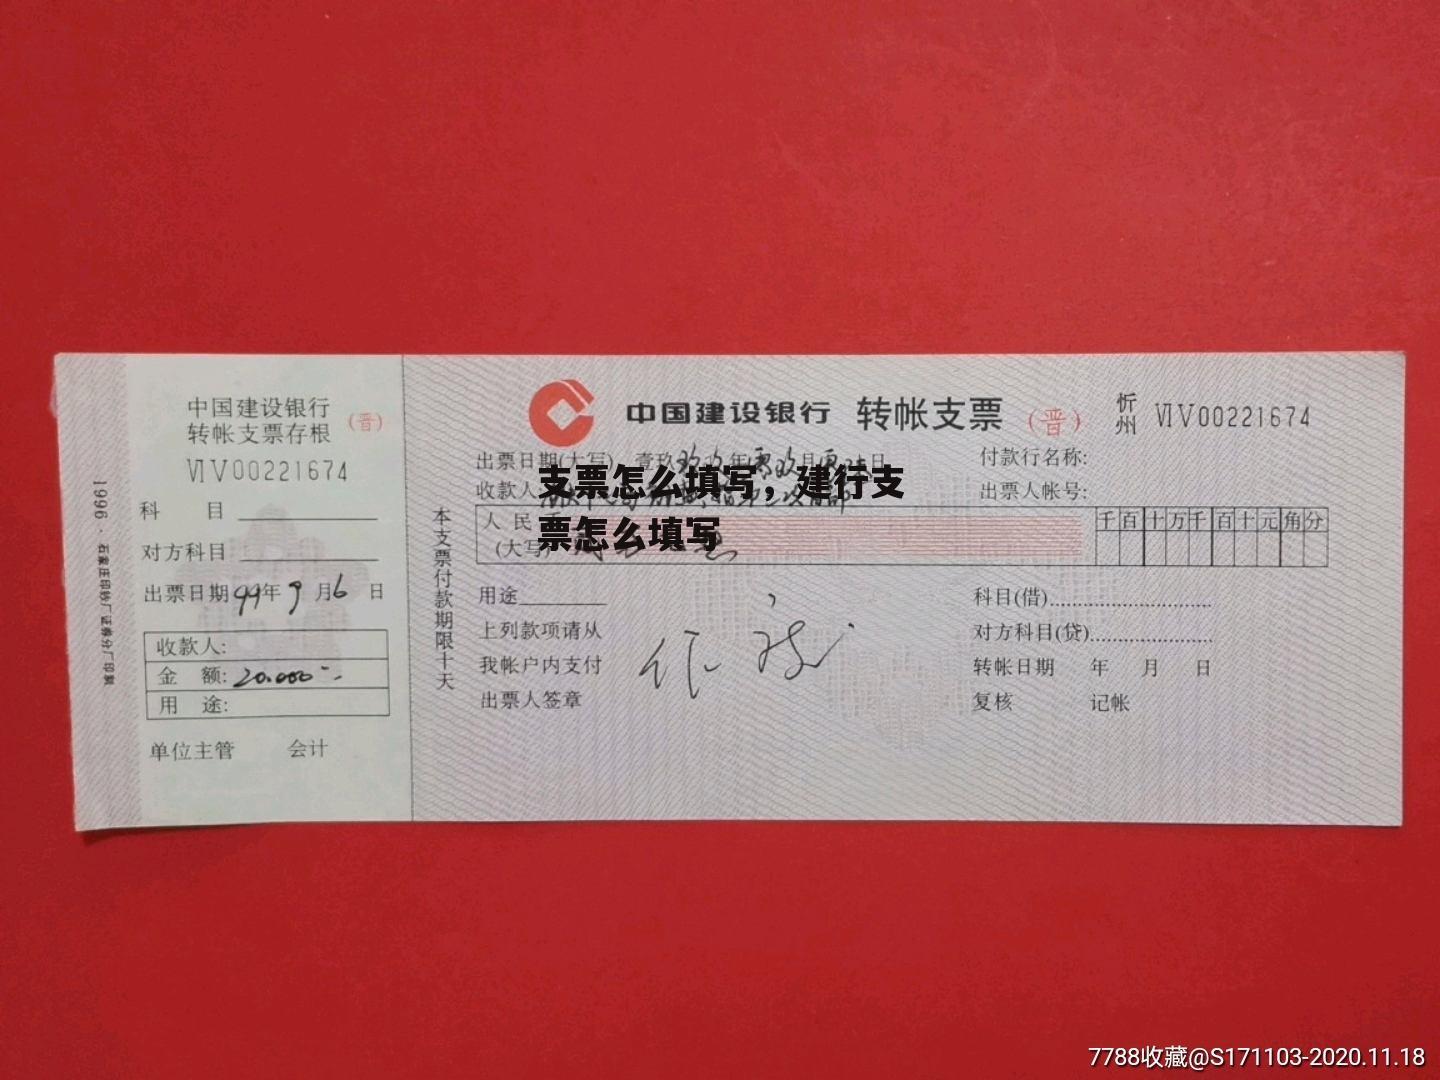 中国建设银行
转帐支票存根 (晋)
ⅥⅤ00221674
科 目
对方科目
出票日期 99年 9月6日
收款人:
金 额: 20.000
用 途:
单位主管 会计
1996·石家庄印钞厂证券分厂印制
本支票付款期限十天
中国建设银行 转帐支票 (晋) 忻州 ⅥⅤ00221674
出票日期(大写) 壹玖玖玖年零玖月 日
付款行名称:
收款人
出票人帐号:
支票怎么填写，建行支
票怎么填写
人民
(大写
千百十万千百十元角分
用途
上列款项请从
我帐户内支付
出票人签章
作废
科目(借)
对方科目(贷)
转帐日期 年 月 日
复核 记帐
7788收藏@S171103-2020.11.18